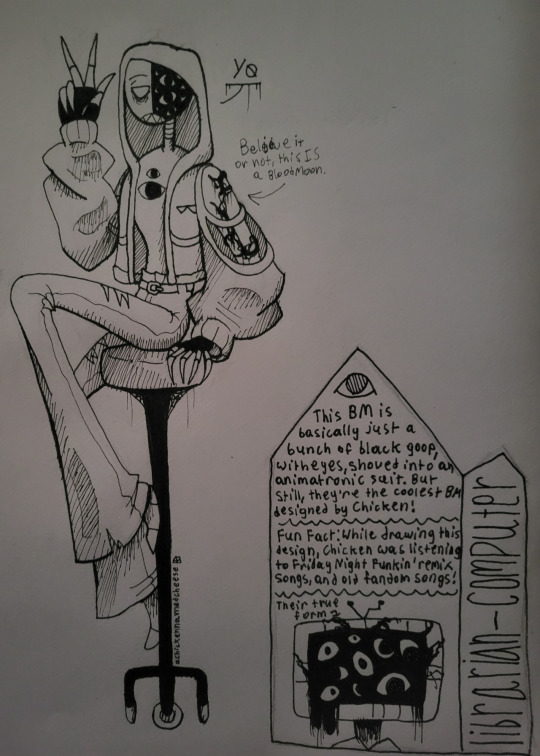 YO
Believe it
or not, this IS
a BloodMoon.
This BM is
basically just a
bunch of black goop,
with eyes, shoved into an
animatronic suit. But
still, they're the coolest BM
designed by Chicken!
Fun Fact: While drawing this
design, Chicken was listening
to Friday Night Funkin' remix
songs, and old fandom songs!
Their true
form?
librarian-computer